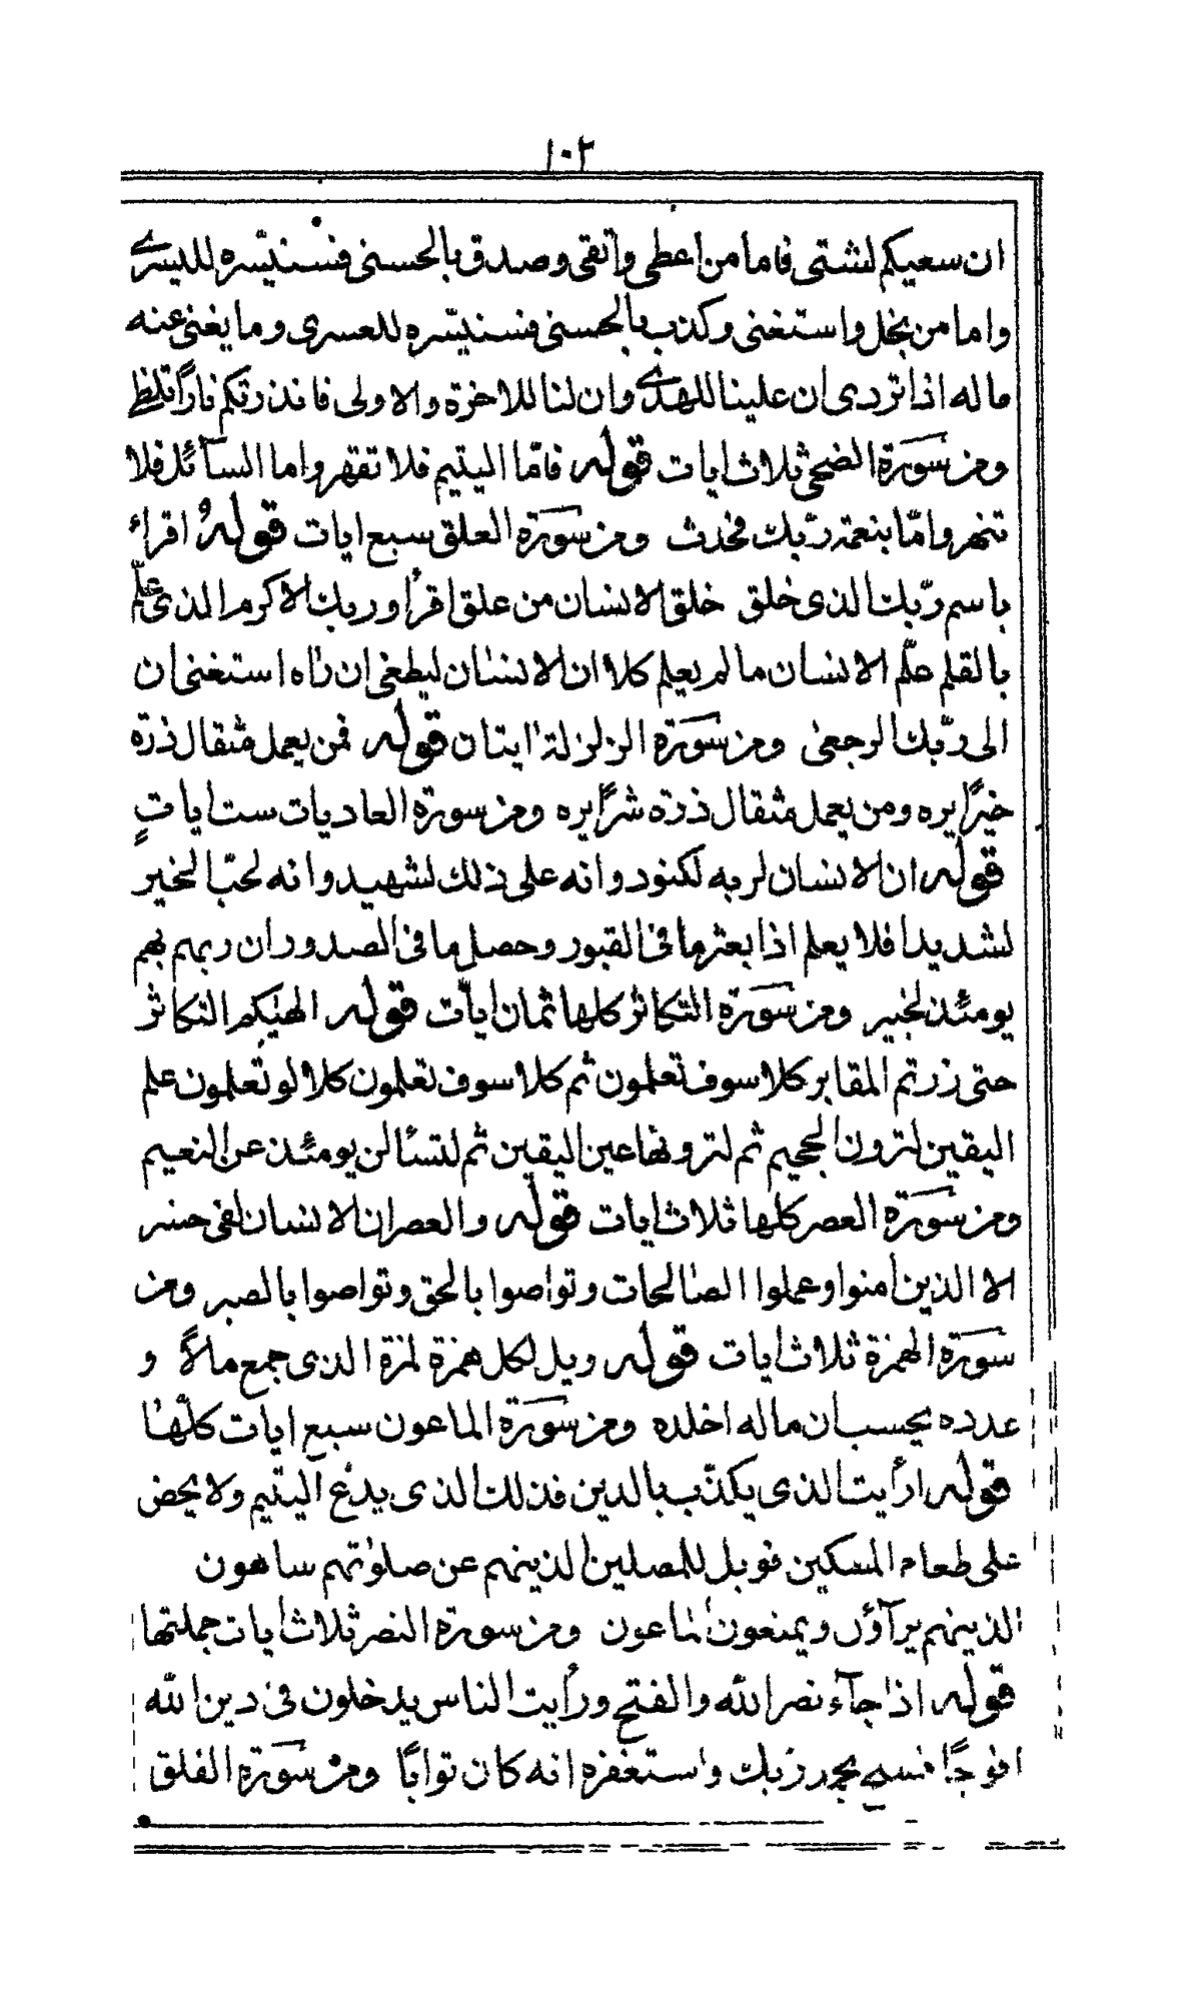 ١٠٢
ان سعيكم لشتى فاما من اعطى واتقى وصدق بالحسنى فسنيسّره لليسرى
واما من بخل واستغنى وكذب بالحسنى فسنيسّره للعسرى وما يغنى عنه
ماله اذا تردى ان علينا للهدى وان لنا للاخرة والاولى فانذرتكم ناراً تلظى
ومن سورة الضحى ثلاث ايات قوله فامّا اليتيم فلا تقهر واما السآئل فلا
تنهر وامّا بنعمة ربّك فحدث ومن سورة العلق سبع ايات قولهُ اقراء
باسم ربّك الذى خلق خلق الانسان من علق اقرأ وربك الاكرم الذى علّم
بالقلم علّم الانسان ما لم يعلم كلا ان الانسان ليطغى ان راه استغنى ان
الى ربّك الرجعى ومن سورة الزلزلة ايتان قوله فمن يعمل مثقال ذرّة
خيرًا يره ومن يعمل مثقال ذرة شرًّا يره ومن سورة العاديات ست اياتٍ
قوله ان الانسان لربه لكنود وانه على ذلك لشهيد وانه لحبّ الخير
لشديد افلا يعلم اذا بعثر ما فى القبور وحصل ما فى الصدور ان ربهم بهم
يومئذ لخبير ومن سورة التكاثر كلها ثمان ايات قوله الهيكم التكاثر
حتى زرتم المقابر كلا سوف تعلمون ثم كلا سوف تعلمون كلا لو تعلمون علم
اليقين لترون الجحيم ثم لترونها عين اليقين ثم لتسئالن يومئذ عن النعيم
ومن سورة العصر كلها ثلاث ايات قوله والعصر ان الانسان لفى خسر
الا الذين امنوا وعملوا الصالحات وتواصوا بالحق وتواصوا بالصبر ومن
سورة الهمزة ثلاث ايات قوله ويل لكل همزة لمزة الذى جمع مالاً و
عدده يحسب ان ماله اخلده ومن سورة الماعون سبع ايات كلّها
قوله ارأيت الذى يكذّب بالدين فذلك الذى يدع اليتيم ولا يحض
على طعام المسكين فويل للمصلين الذينهم عن صلوتهم ساهون
الذينهم يرآؤن ويمنعون الماعون ومن سورة النصر ثلاث ايات جملتها
قوله اذا جآء نصر الله والفتح ورأيت الناس يدخلون فى دين الله
افوجًا فسبح بحمد ربّك واستغفره انه كان توابًا ومن سورة الفلق